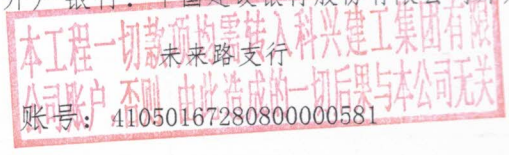 开户银行：中国建设银行股份有限公司
未来路支行
本工程一切款项均需转入科兴建工集团有限
公司账户，否则，由此造成的一切后果与本公司无关
账号：41050167280800000581